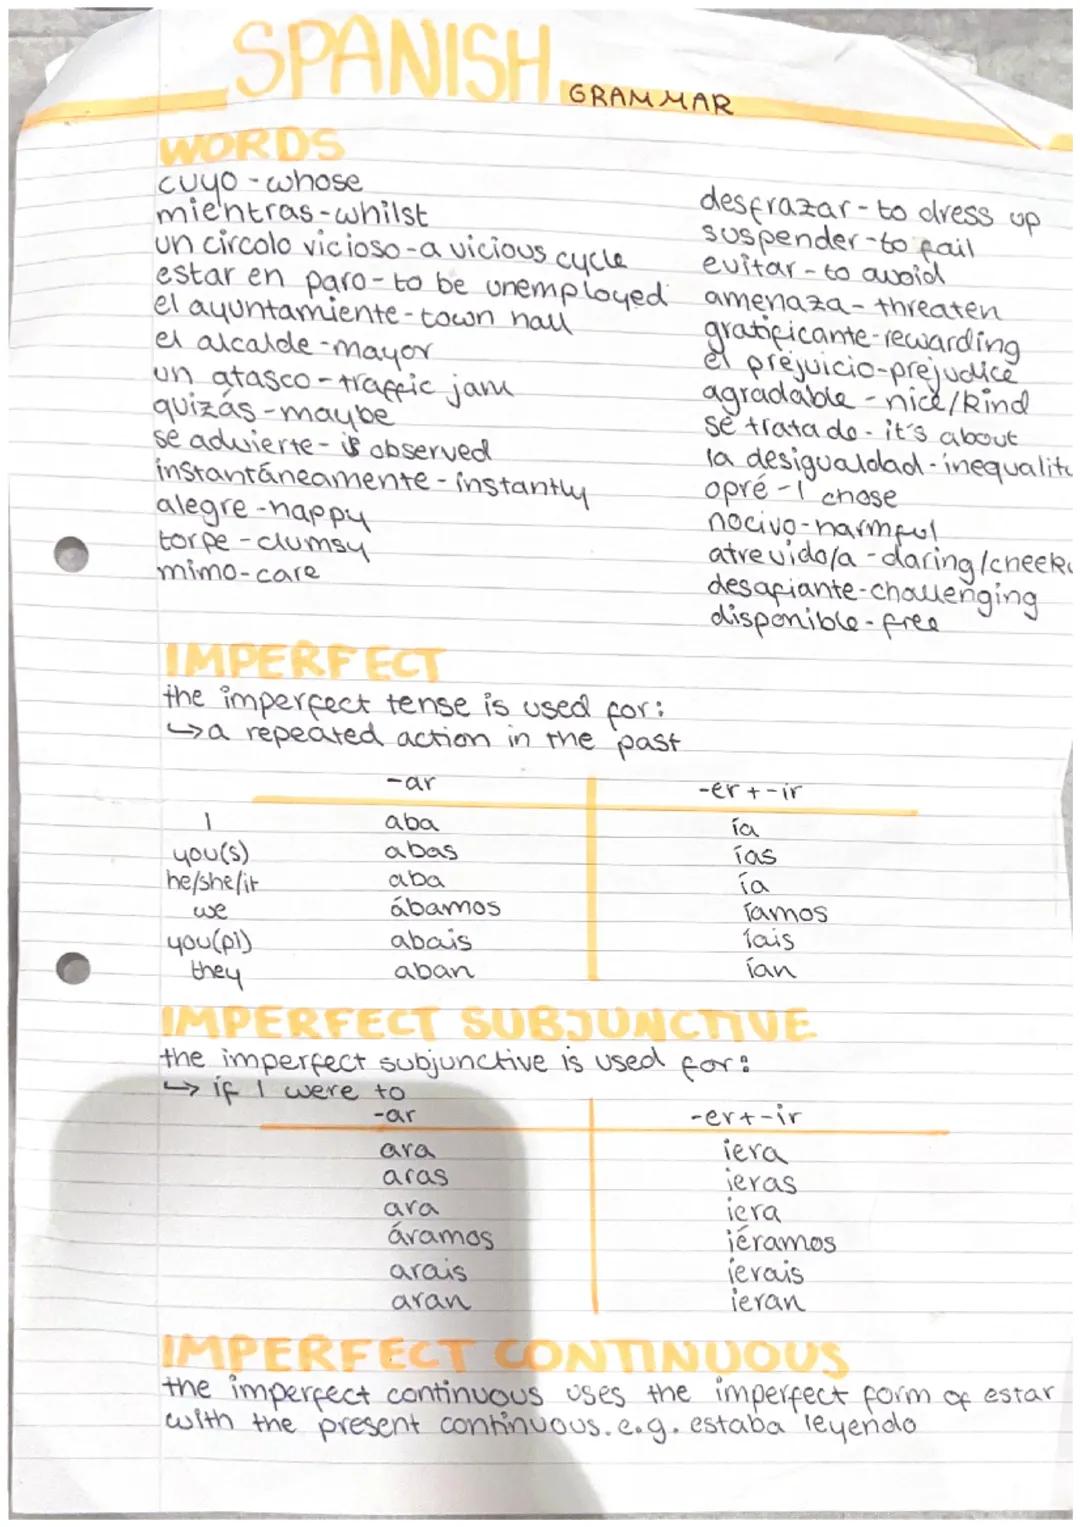 SPANISH GRAMMAR
WORDS
cuyo - whose
mientras - whilst
un circolo vicioso - a vicious cycle
estar en paro - to be unemployed
el ayuntamiente - town hall
el alcalde - mayor
un atasco - traffic jam
quizás - maybe
se advierte - is observed
instantáneamente - instantly
alegre - happy
torpe - clumsy
mimo - care
desfrazar - to dress up
suspender - to fail
evitar - to avoid
amenaza - threaten
gratificante - rewarding
el prejuicio - prejudice
agradable - nice/kind
se trata de - it's about
la desigualdad - inequality
opré - I chose
nocivo - harmful
atrevido/a - daring/cheeky
desafiante - challenging
disponible - free
IMPERFECT
the imperfect tense is used for:
↳ a repeated action in the past
-ar -er + -ir
I aba ía
you(s) abas ías
he/she/it aba ía
we ábamos íamos
you(pl) abais íais
they aban ían
IMPERFECT SUBJUNCTIVE
the imperfect subjunctive is used for:
↳ if I were to
-ar -er + -ir
ara iera
aras ieras
ara iera
áramos iéramos
arais ierais
aran ieran
IMPERFECT CONTINUOUS
the imperfect continuous uses the imperfect form of estar
with the present continuous. e.g. estaba leyendo